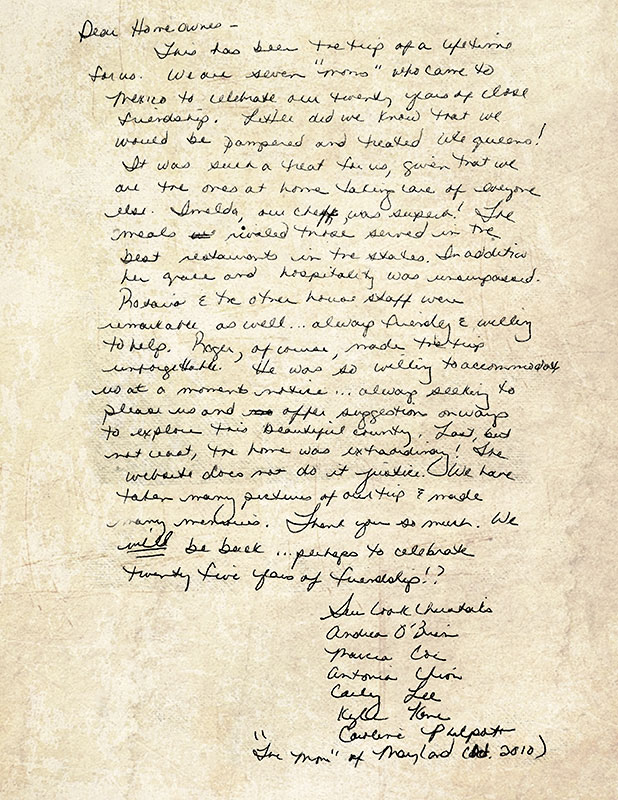 Dear Homeowner -
This has been the trip of a lifetime
for us. We are seven "moms" who came to
Mexico to celebrate our twenty years of close
friendship. Little did we know that we
would be pampered and treated like queens!
It was such a treat for us, given that we
are the ones at home taking care of everyone
else. Imelda, our cheff, was superb! The
meals rivaled those served in the
best restaurants in the states. In addition
her grace and hospitality was unsurpassed.
Rosario & the other house staff were
remarkable, as well... always friendly & willing
to help. Roger, of course, made the trip
unforgettable. He was so willing to accommodate
us at a moments notice... always seeking to
please us and offer suggestion on ways
to explore this beautiful country. Last, but
not least, the home was extraordinary! The
website does not do it justice. We have
taken many pictures of our trip & made
many memories. Thank you so much. We
will be back ... perhaps to celebrate
twenty five years of friendship!?
Sue Cook
Andrea O'Brien
Marcia
Antonia
Carly Lee
Kyle
Caroline Philpott
"The Moms" of Maryland (Oct. 2010)